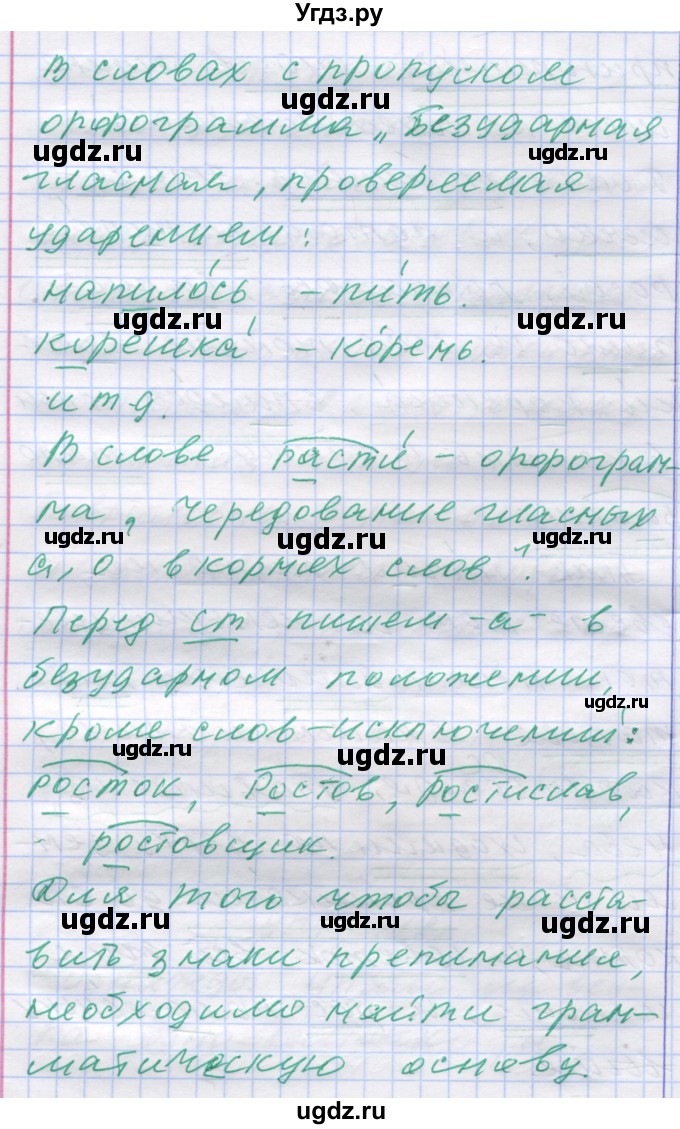 Угдз.ру
В словах с пропуском
ugdz.ru
орфограмма „Безударная
ugdz.ru ugdz.ru
гласная, проверяемая
ударением:
напило́сь – пи́ть.
ugdz.ru ugdz.ru
корешка́ – ко́рень.
и т д.
В слове расти́ – орфограм-
ма „чередование гласных
ugdz.ru ugdz.ru ugdz.ru
а, о в корнях слов“.
Перед ст пишем -а- в
безударном положении,
ugdz.ru
кроме слов-исключений:
ugdz.ru ugdz.ru
росток, Ростов, Ростислав,
ростовщик.
Для того чтобы расста-
ugdz.ru ugdz.ru ugdz.ru
вить знаки препинания,
необходимо найти грам-
матическую основу.
ugdz.ru